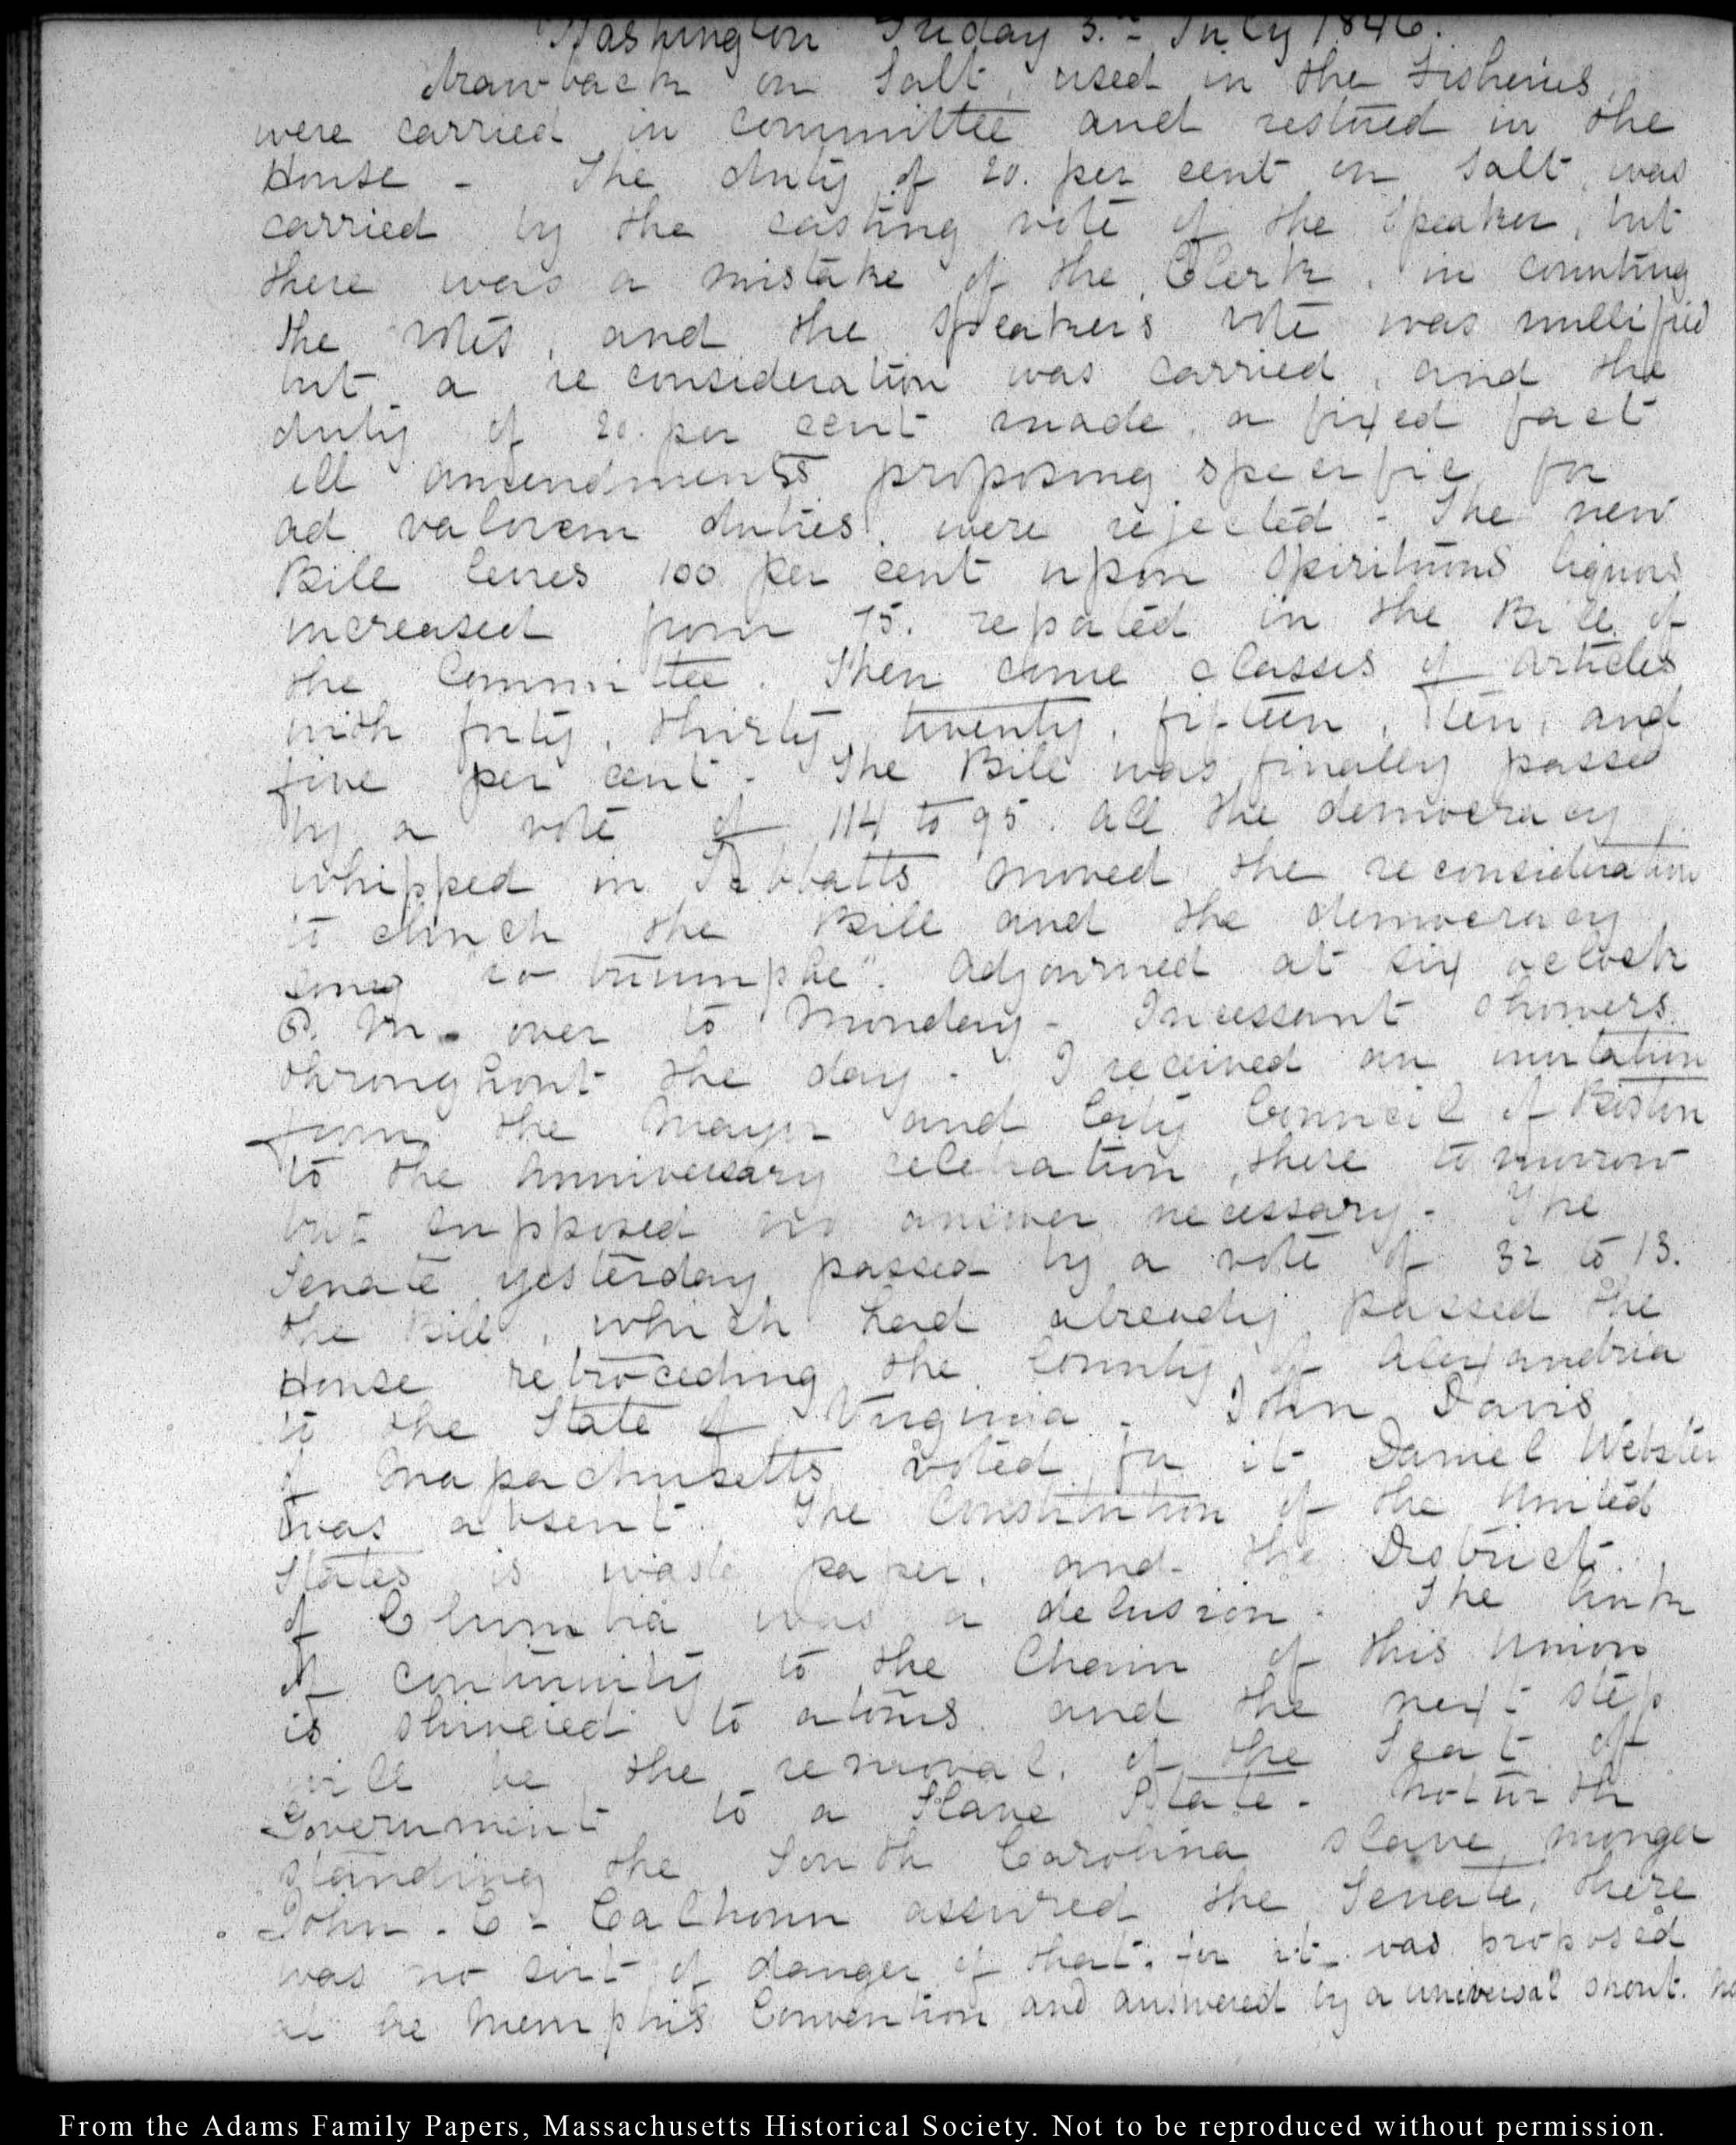 Washington Friday 3.d July 1846.
drawback on Salt, used in the Fisheries,
were carried in committee and restored in the
House - The duty of 20. per cent on Salt, was
carried by the casting vote of the Speaker, but
there was a mistake of the Clerk, in counting
the votes, and the Speakers vote was nullified
but a reconsideration was carried, and the
duty of 20. per cent made, a fixed fact
all amendments proposing specific for
ad valorem duties, were rejected - The new
Bill levies 100 per cent upon Spirituous liquors
increased from 75. reported in the Bill of
the Committee. Then come classes of articles
with forty, thirty, twenty, fifteen, ten, and
five per cent - The Bill was finally passed
by a vote of 114 to 95. all the democracy
whipped in Tibbatts moved the reconsideration
to clinch the Bill and the democracy
sung "io triumphe". Adjourned at six oclock
P. M. over to Monday - Incessant showers
throughout the day - I received an invitation
from the Mayor and City Council of Boston
to the Anniversary celebration, there to morrow
but supposed no answer necessary - The
Senate yesterday passed by a vote of 32 to 13.
the Bill, which had already passed the
House retroceding the County of Alexandria
to the State of Virginia - John Davis
of Massachusetts voted for it Daniel Webster
was absent. The Constitution of the United
States is waste paper, and the District
of Clumbia was a delusion - The link
of continuity to the Chain of this Union
is shivered to atoms and the next step
will be the removal, of the Seat of
Government to a Slave State - Notwith
standing the South Carolina slave monger
John - C - Calhoun assured the Senate, there
was no sort of danger of that, for it was proposed
at the Memphis Convention and answered by a universal shout. No
From the Adams Family Papers, Massachusetts Historical Society. Not to be reproduced without permission.